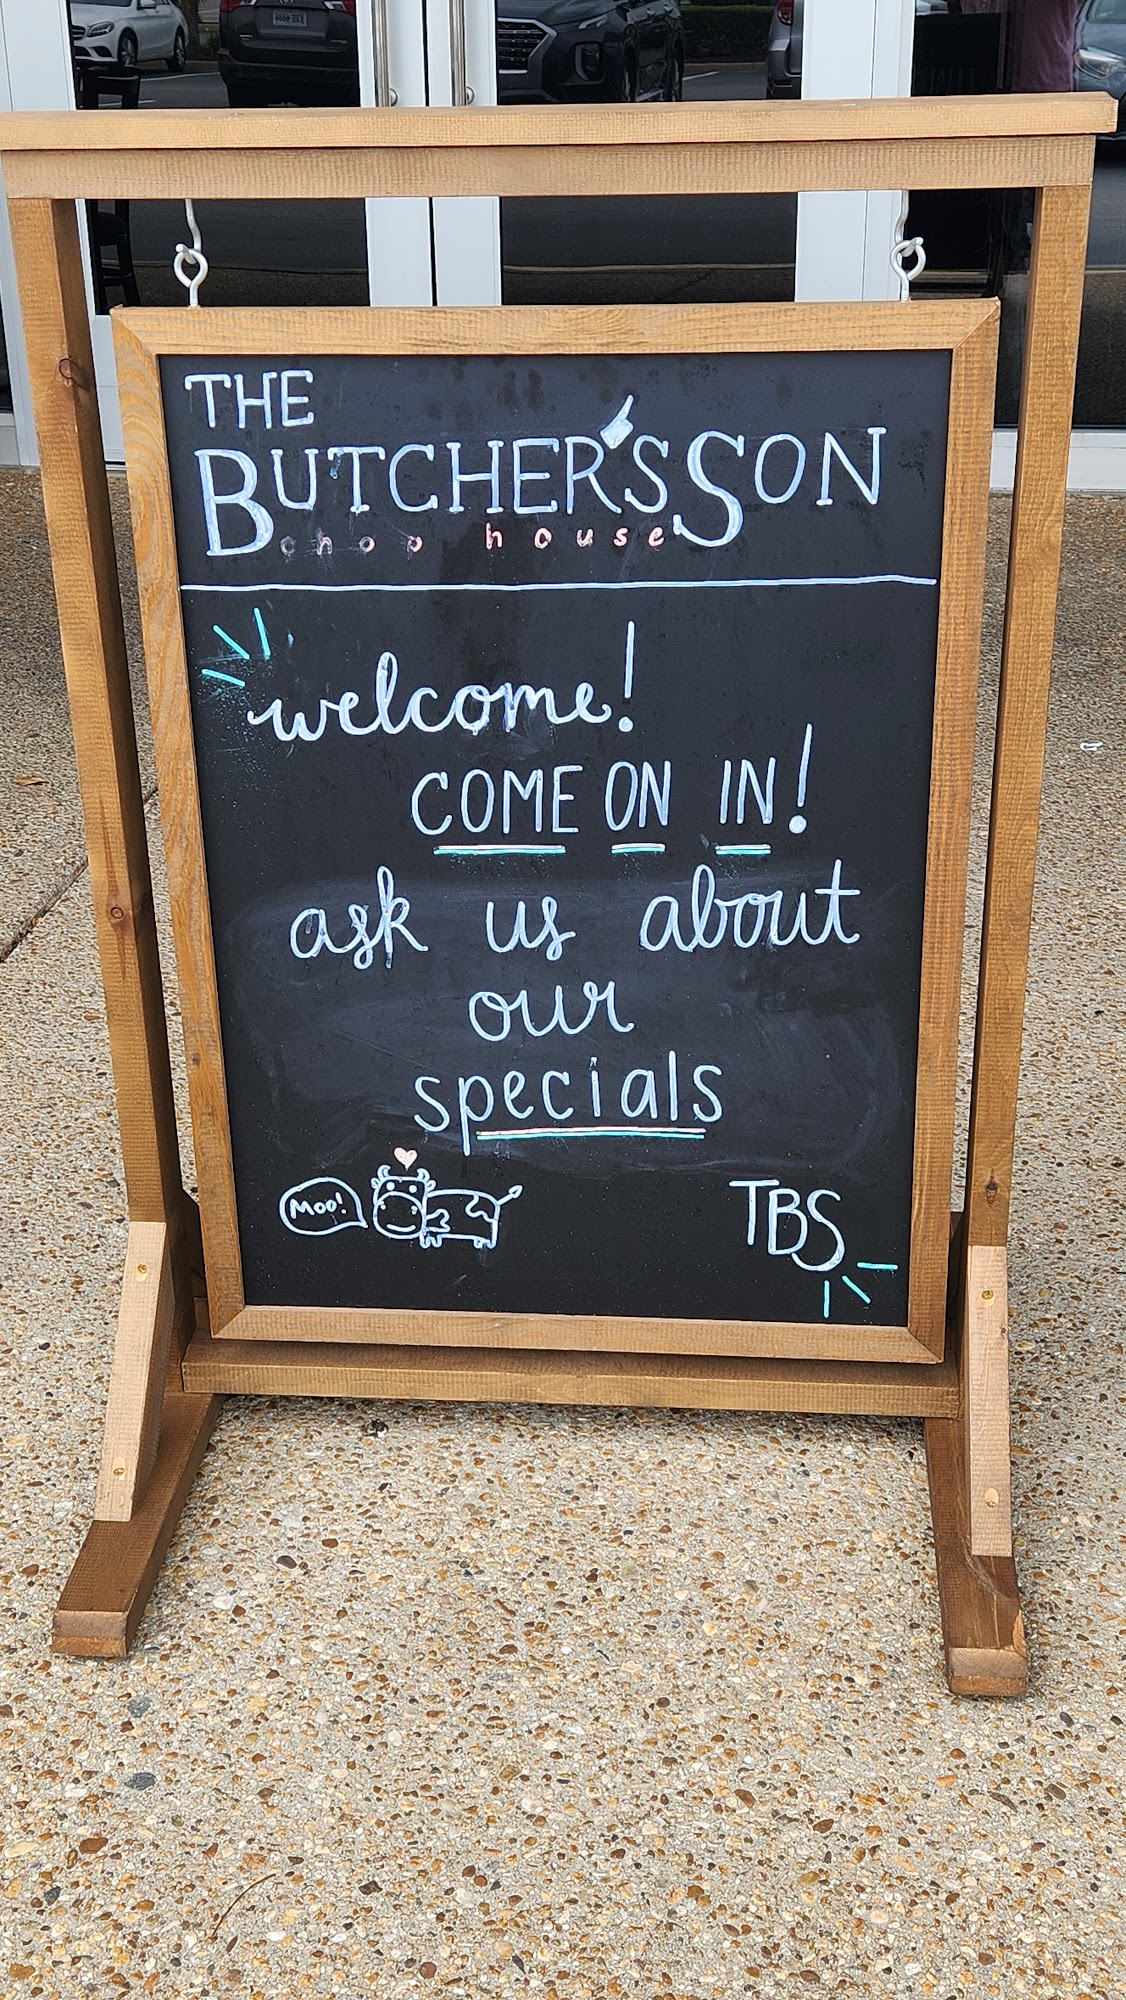 THE
BUTCHER'S SON
chop house
welcome!
COME ON IN!
ask us about
our
specials
Moo!
TBS